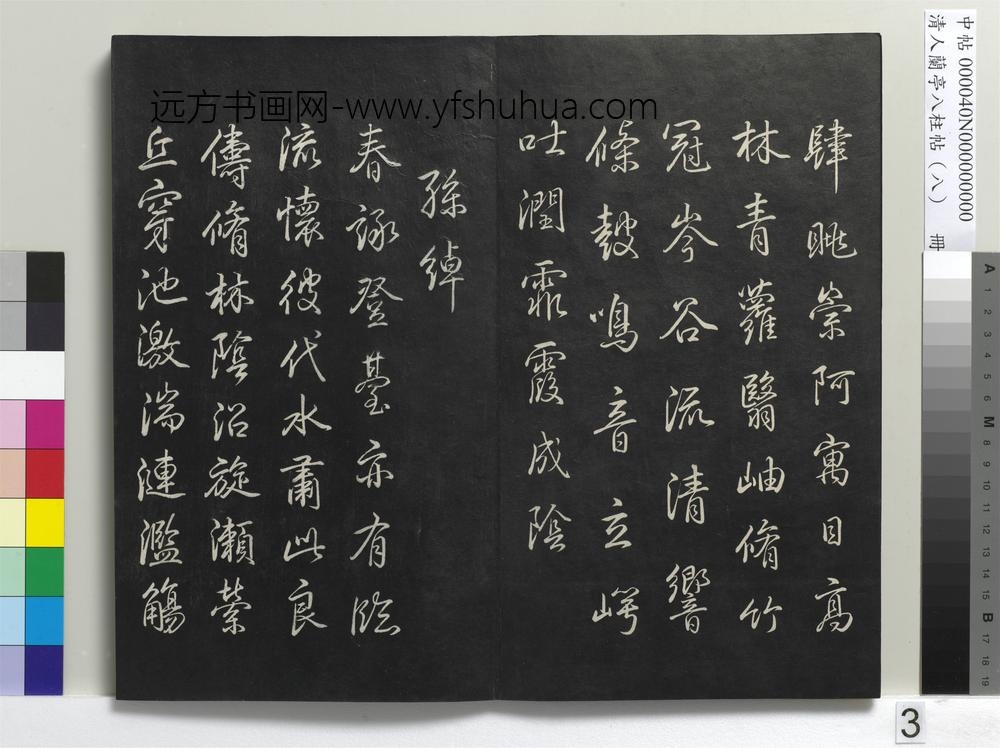 中帖 000040N000000000
清人蘭亭八柱帖（八） 冊
远方书画网-www.yfshuhua.com
肆眺崇阿寓目高
林青蘿翳岫脩竹
冠岑谷流清響
條鼓鳴音玄崿
吐潤霏霞成陰
孫綽
春詠登臺亦有臨
流懷彼代水肅此良
儔脩林陰沼旋瀨縈
丘穿池激湍漣濫觴
A 1 2 3 4 5 6 M 8 9 10 11 12 13 14 15 B 17 18 19
3